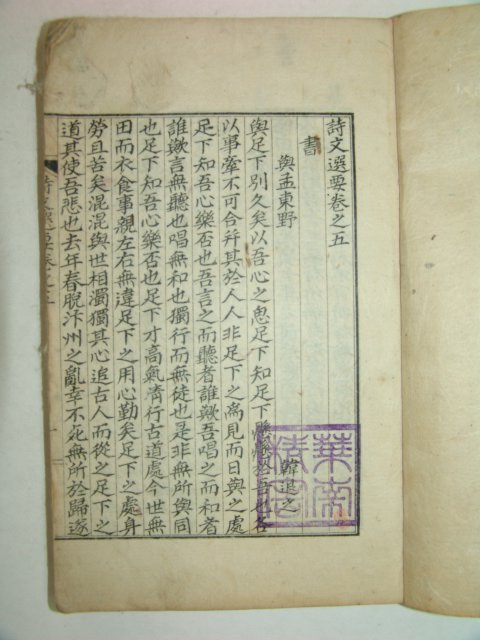 詩文選要卷之五
書
與孟東野
韓退之
與足下別久矣以吾心之思足下知足下懸懸於吾也各
以事牽不可合幷其於人人非足下之爲見而日與之處
足下知吾心樂否也吾言之而聽者誰歟吾唱之而和者
誰歟言無聽也唱無和也獨行而無徒也是非無所與同
也足下知吾心樂否也足下才高氣淸行古道處今世無
田而衣食事親左右無違足下之用心勤矣足下之處身
勞且苦矣混混與世相濁獨其心追古人而從之足下之
道其使吾悲也去年春脫汴州之亂幸不死無所於歸遂
詩文選要卷之五
華南